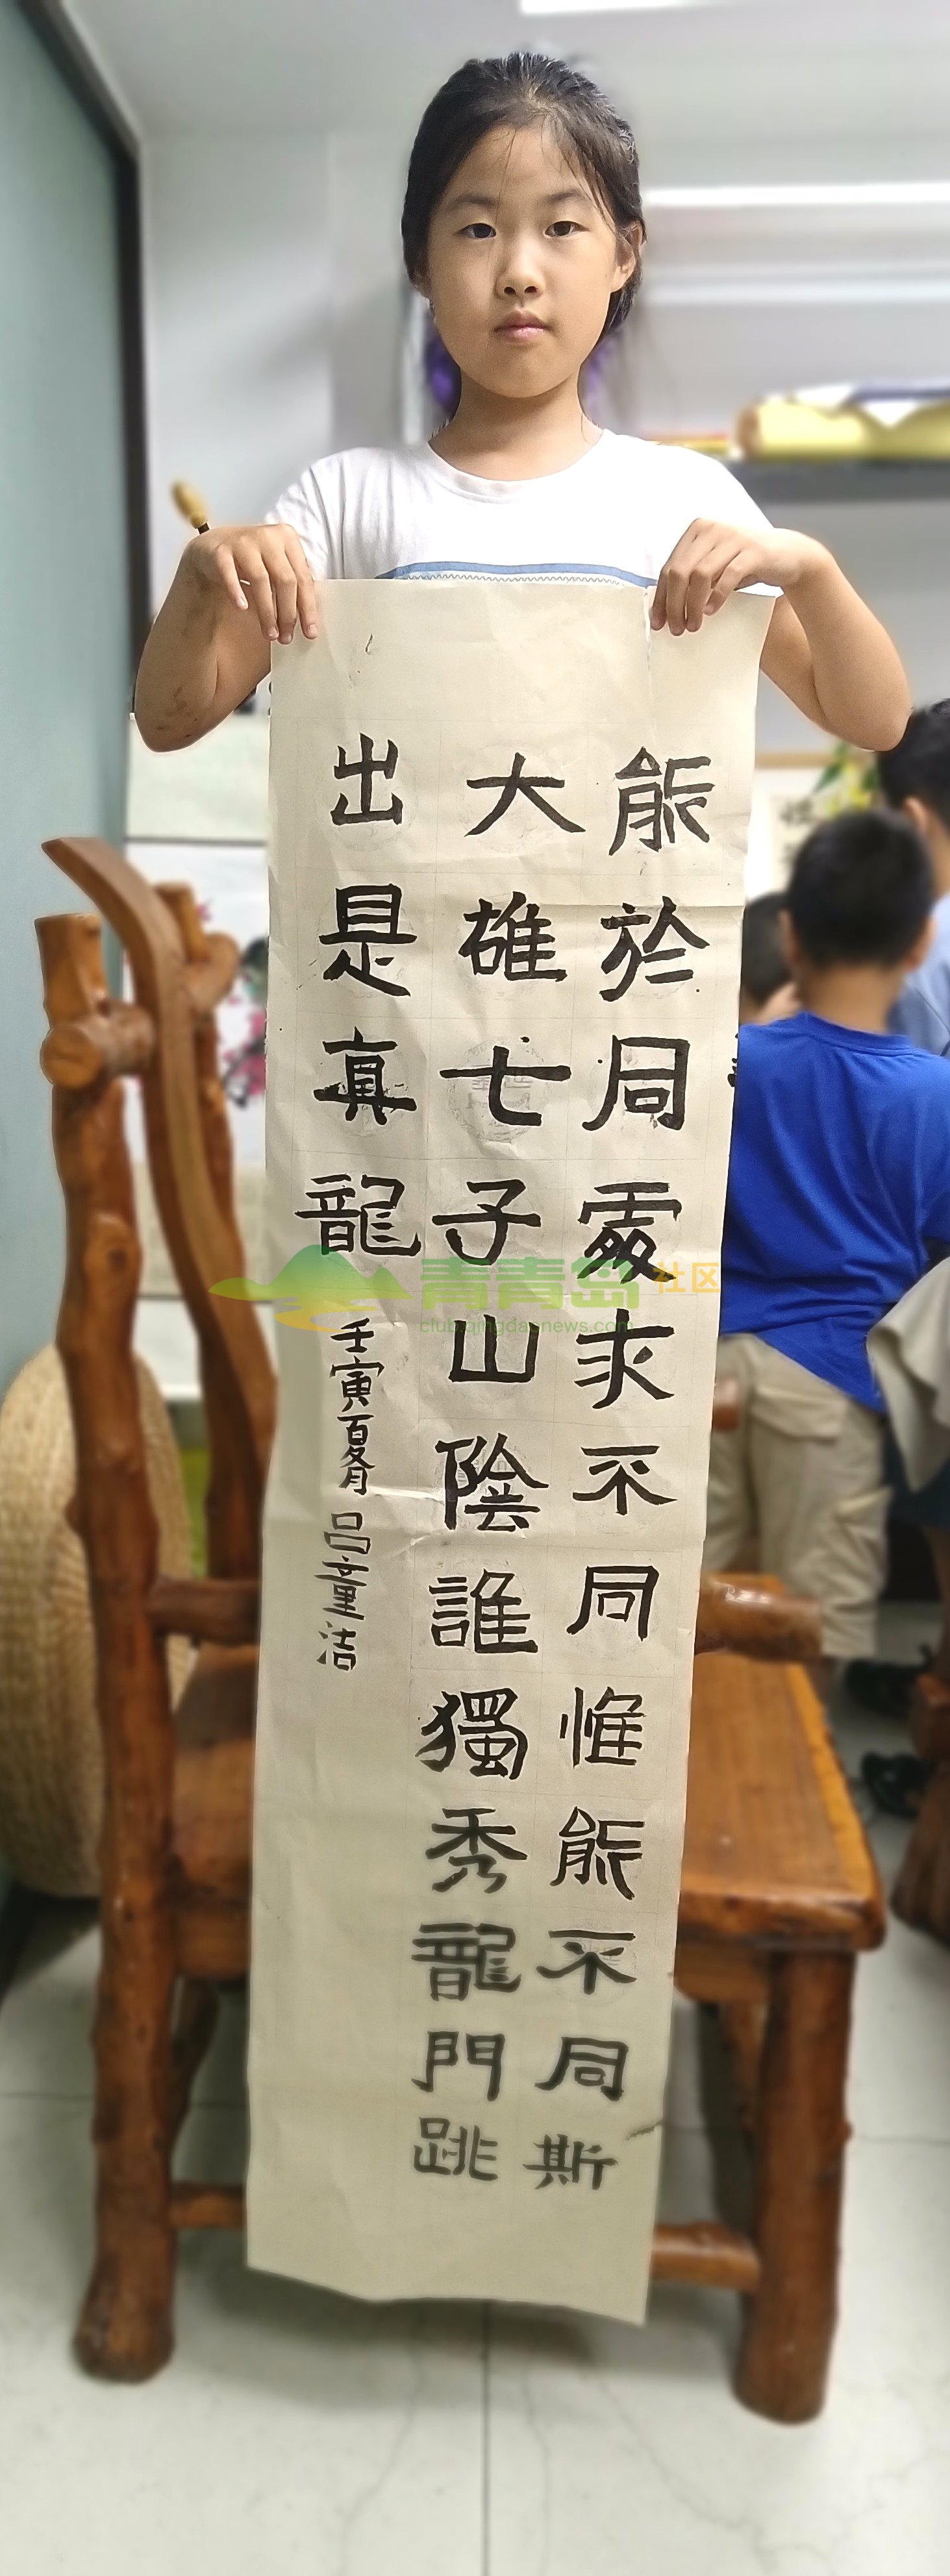 能於同處求不同惟能不同斯
大雄七子山陰誰獨秀龍門跳
出是真龍
壬寅夏月 吕童洁
青青岛社区
club.qingdaonews.com